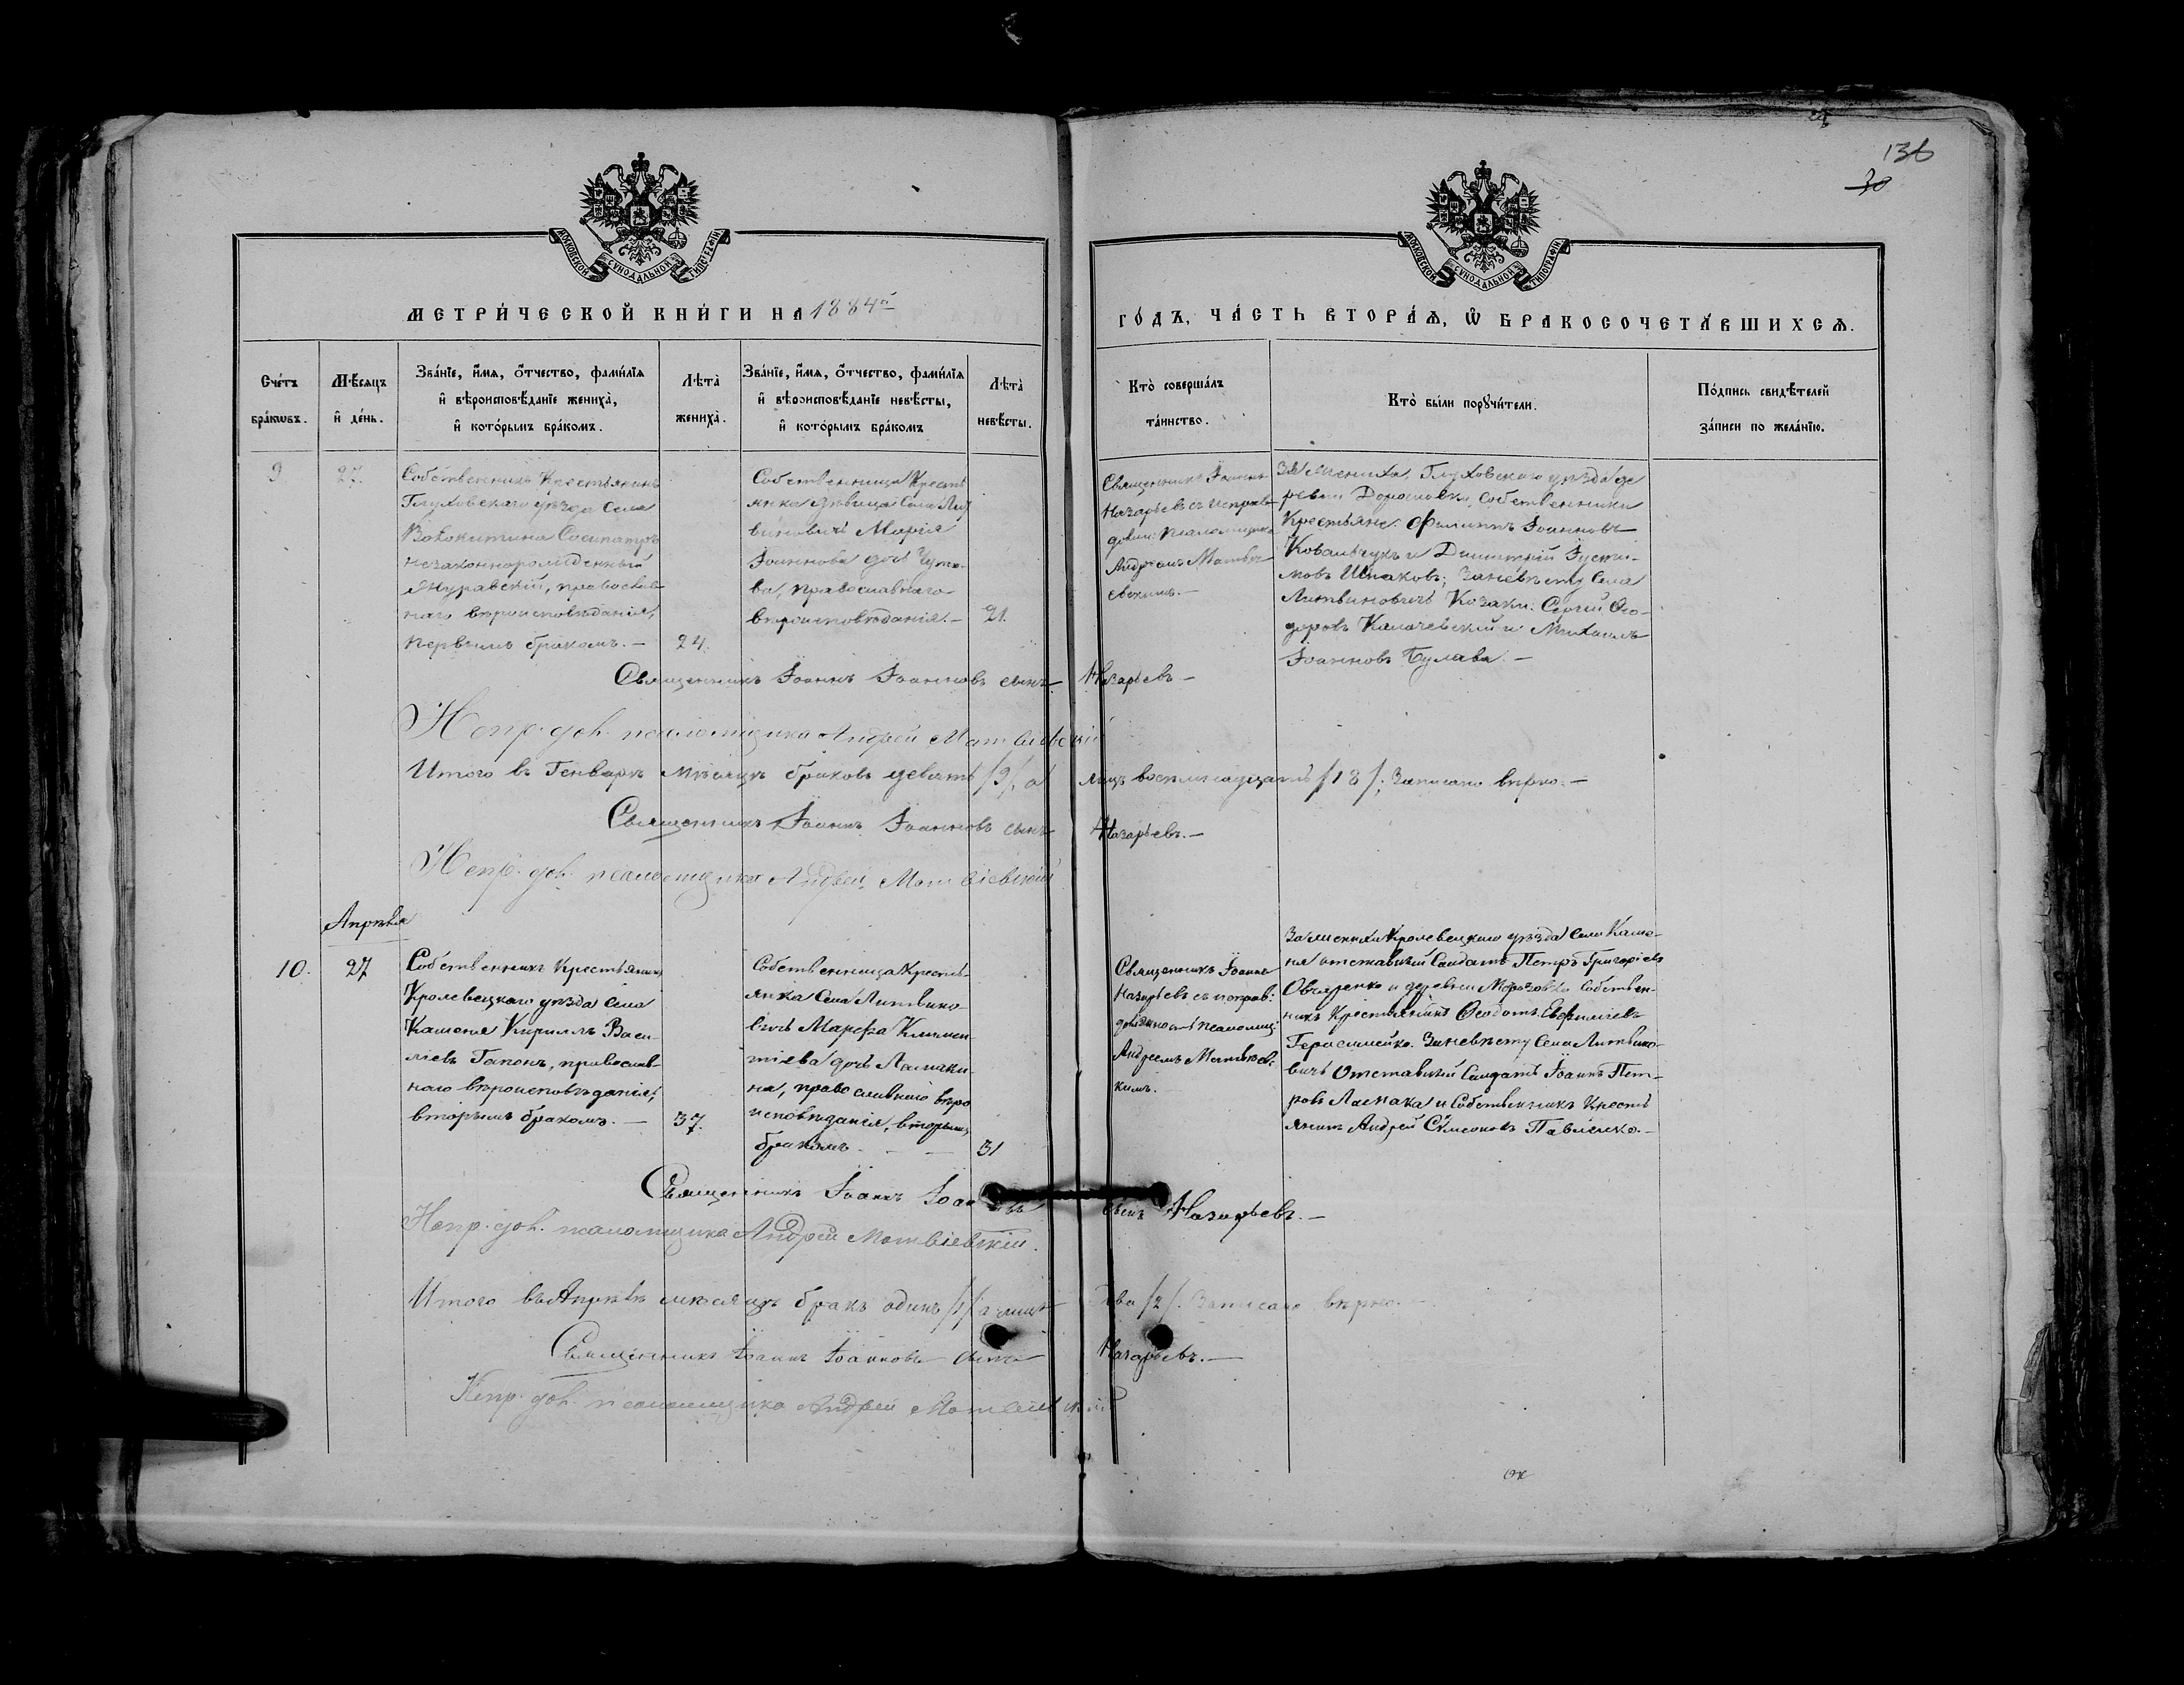 136
30
МОСКОВСКОЙ СѴНОДАЛЬНОЙ ТИПОГРАФІИ
МОСКОВСКОЙ СѴНОДАЛЬНОЙ ТИПОГРАФІИ
МЕТРИ́ЧЕСКОЙ КНИ́ГИ НА 1884й
ГО́ДЪ, ЧА́СТЬ ВТОРА́Я, Ѡ БРАКОСОЧЕТА́ВШИХСЯ.
Сче́тъ
бра́ковъ.
Мѣ́сяцъ
и де́нь.
Зва́нїе, и́мя, о́тчество, фами́лїя
и вѣроисповѣ́данїе жениха̀,
и кото́рымъ бра́комъ.
Лѣта̀
жениха̀.
Зва́нїе, и́мя, о́тчество, фами́лїя
и вѣроисповѣ́данїе невѣ́сты,
и кото́рымъ бра́комъ
Лѣта̀
невѣ́сты.
Кто̀ соверша́лъ
та́инство.
Кто̀ бы́ли порꙋчи́тели.
По́дпись свидѣ́телей
за́писи по жела́нїю.
9
27.
Собственникъ Крестьянинъ
Глуховскаго уѣзда Села
Волокитина Сосипатръ
незаконнорожденный
Журавскій, православ
наго вѣроисповѣданія,
первымъ бракомъ. —
24.
Собственница Кресть
янка дѣвица Села Лит
виновичъ Марія
Іоаннова дочь
ва, православнаго
вѣроисповѣданія. —
21.
Священникъ Іоаннъ
Назарьевъ съ исправ
довкн: Псаломщика
Андреемъ Матвѣе
евскимъ. —
За Жениха, Глуховскаго уѣзда де
ревни Дорошовки Собственники
Крестьяне: Филиппъ Іоанновъ
Ковальчукъ и Димитрій Іусти-
мовъ Шпаковъ; за невѣсту Села
Литвиновичъ Козаки: Сергій Ѳео-
доровъ Калачевскій и Михаилъ
Іоанновъ Булава. —
Священникъ Іоаннъ Іоанновъ сынъ Назарьевъ —
Испр. дол. псаломщика Андрей Матвіевскій
Итого въ Генварѣ мѣсяцѣ браковъ девять /9/, а лицъ восемнадцать /18/; Записано вѣрно. —
Священникъ Іоаннъ Іоанновъ сынъ Назарьевъ. —
Испр. дол. псаломщика Андрей Матвіевскій
Апрѣля
10.
27
Собственникъ Крестьянинъ
Кролевецкаго уѣзда Села
Каменя Кириллъ Васи-
ліевъ Гапонъ, православ-
наго вѣроисповѣданія,
вторымъ бракомъ. —
37.
Собственница Кресть-
янка Села Литвино-
вичъ Марѳа Климен-
тіева дочь
на, православнаго вѣро
исповѣданія, вторымъ
бракомъ. — —
31
Священникъ Іоаннъ
Назарьевъ съ исправ:
должность псаломщ:
Андреемъ Матвѣев-
кимъ.
За жениха Кролевецкаго уѣзда Села Каме-
ня отставный Солдатъ Петръ Григоріевъ
Овчаренко и деревни Морозовки Собствен-
никъ Крестьянинъ Ѳеодотъ Евфиміевъ
Герасименко. За невѣсту Села Литвино-
вичъ Отставный Солдатъ Іоаннъ Пет-
ровъ и Собственникъ Кресть
янинъ Андрей Сѵмеоновъ Павленко. —
Священникъ Іоаннъ Іоанновъ сынъ Назарьевъ. —
Испр. дол. псаломщика Андрей Матвіевскій.
Итого въ Апрѣлѣ мѣсяцѣ бракъ одинъ /1/ а лицъ два /2/. Записано вѣрно. —
Священникъ Іоаннъ Іоанновъ сынъ Назарьевъ. —
Испр. дол. псаломщика Андрей Матвіевскій